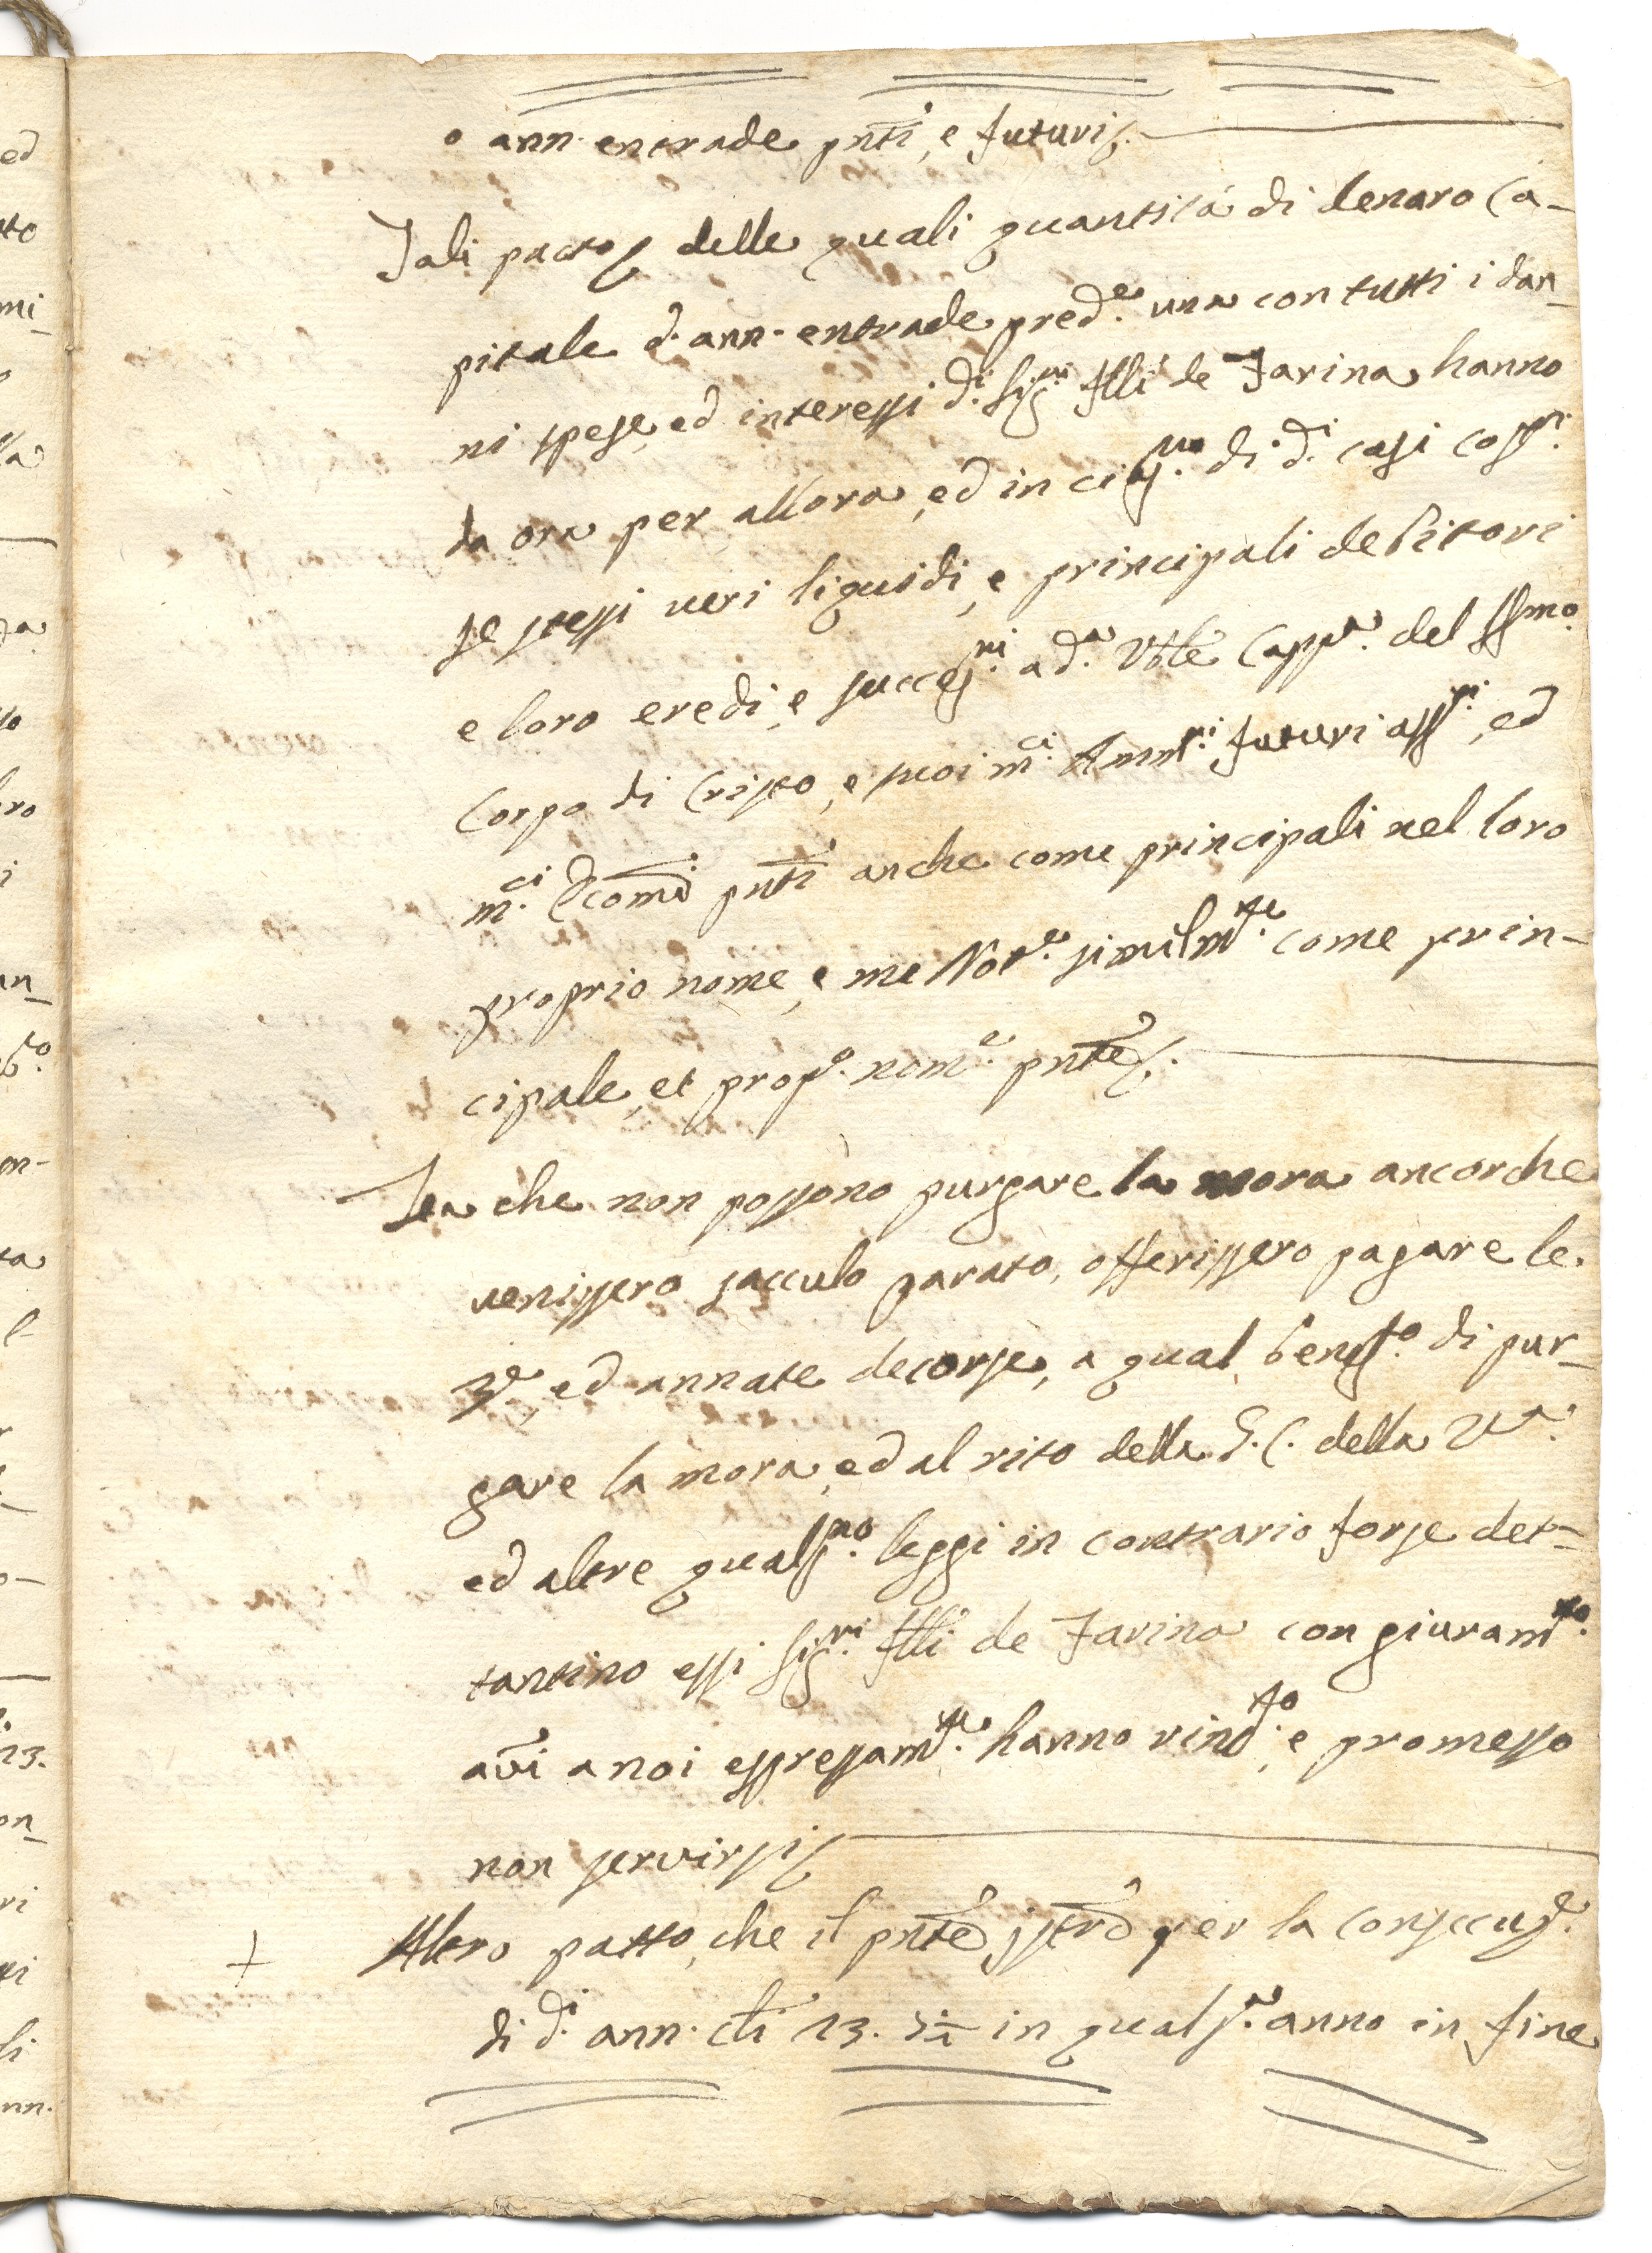 o ann. entrade pnti, e futuri
Tali pacto delle quali quantità di denaro Ca-
pitale d. ann. entrade pred.e una con tutti i dan-
ni spese, ed interessi d.i Sig.ri flli de Farina hanno
da ora per allora, ed in cias.no di d.i casi cos.ni
se stessi veri liquidi, e principali debitori
e loro eredi, e succes.ri a d.a Vble Capp.a del SSmo
Corpo di Cristo, e suoi m.ci Amm.ri futuri ass.ti, ed
m.ci Econmi pnti anche come principali nel loro
proprio nome, e me Not.e similm.te come prin-
cipale, et prop.o nom.e pnte
Ita che non possono purgare la mora ancorche
venissero sacculo parato, offerissero pagare le
3.e, ed annate decorse, a qual benef.o di pur-
gare la mora, ed al rito della G.C. della V.a
ed altre quals.no leggi in contrario forse det-
tantino essi Sig.ri flli de Farina con giuram.to
avi a noi espressam.te hanno rind.to, e promesso
non servirsi
+ Altro patto, che il pnte istro per la consecuz.e
di d.i ann. dti 13. 3ia in quals.a anno in fine